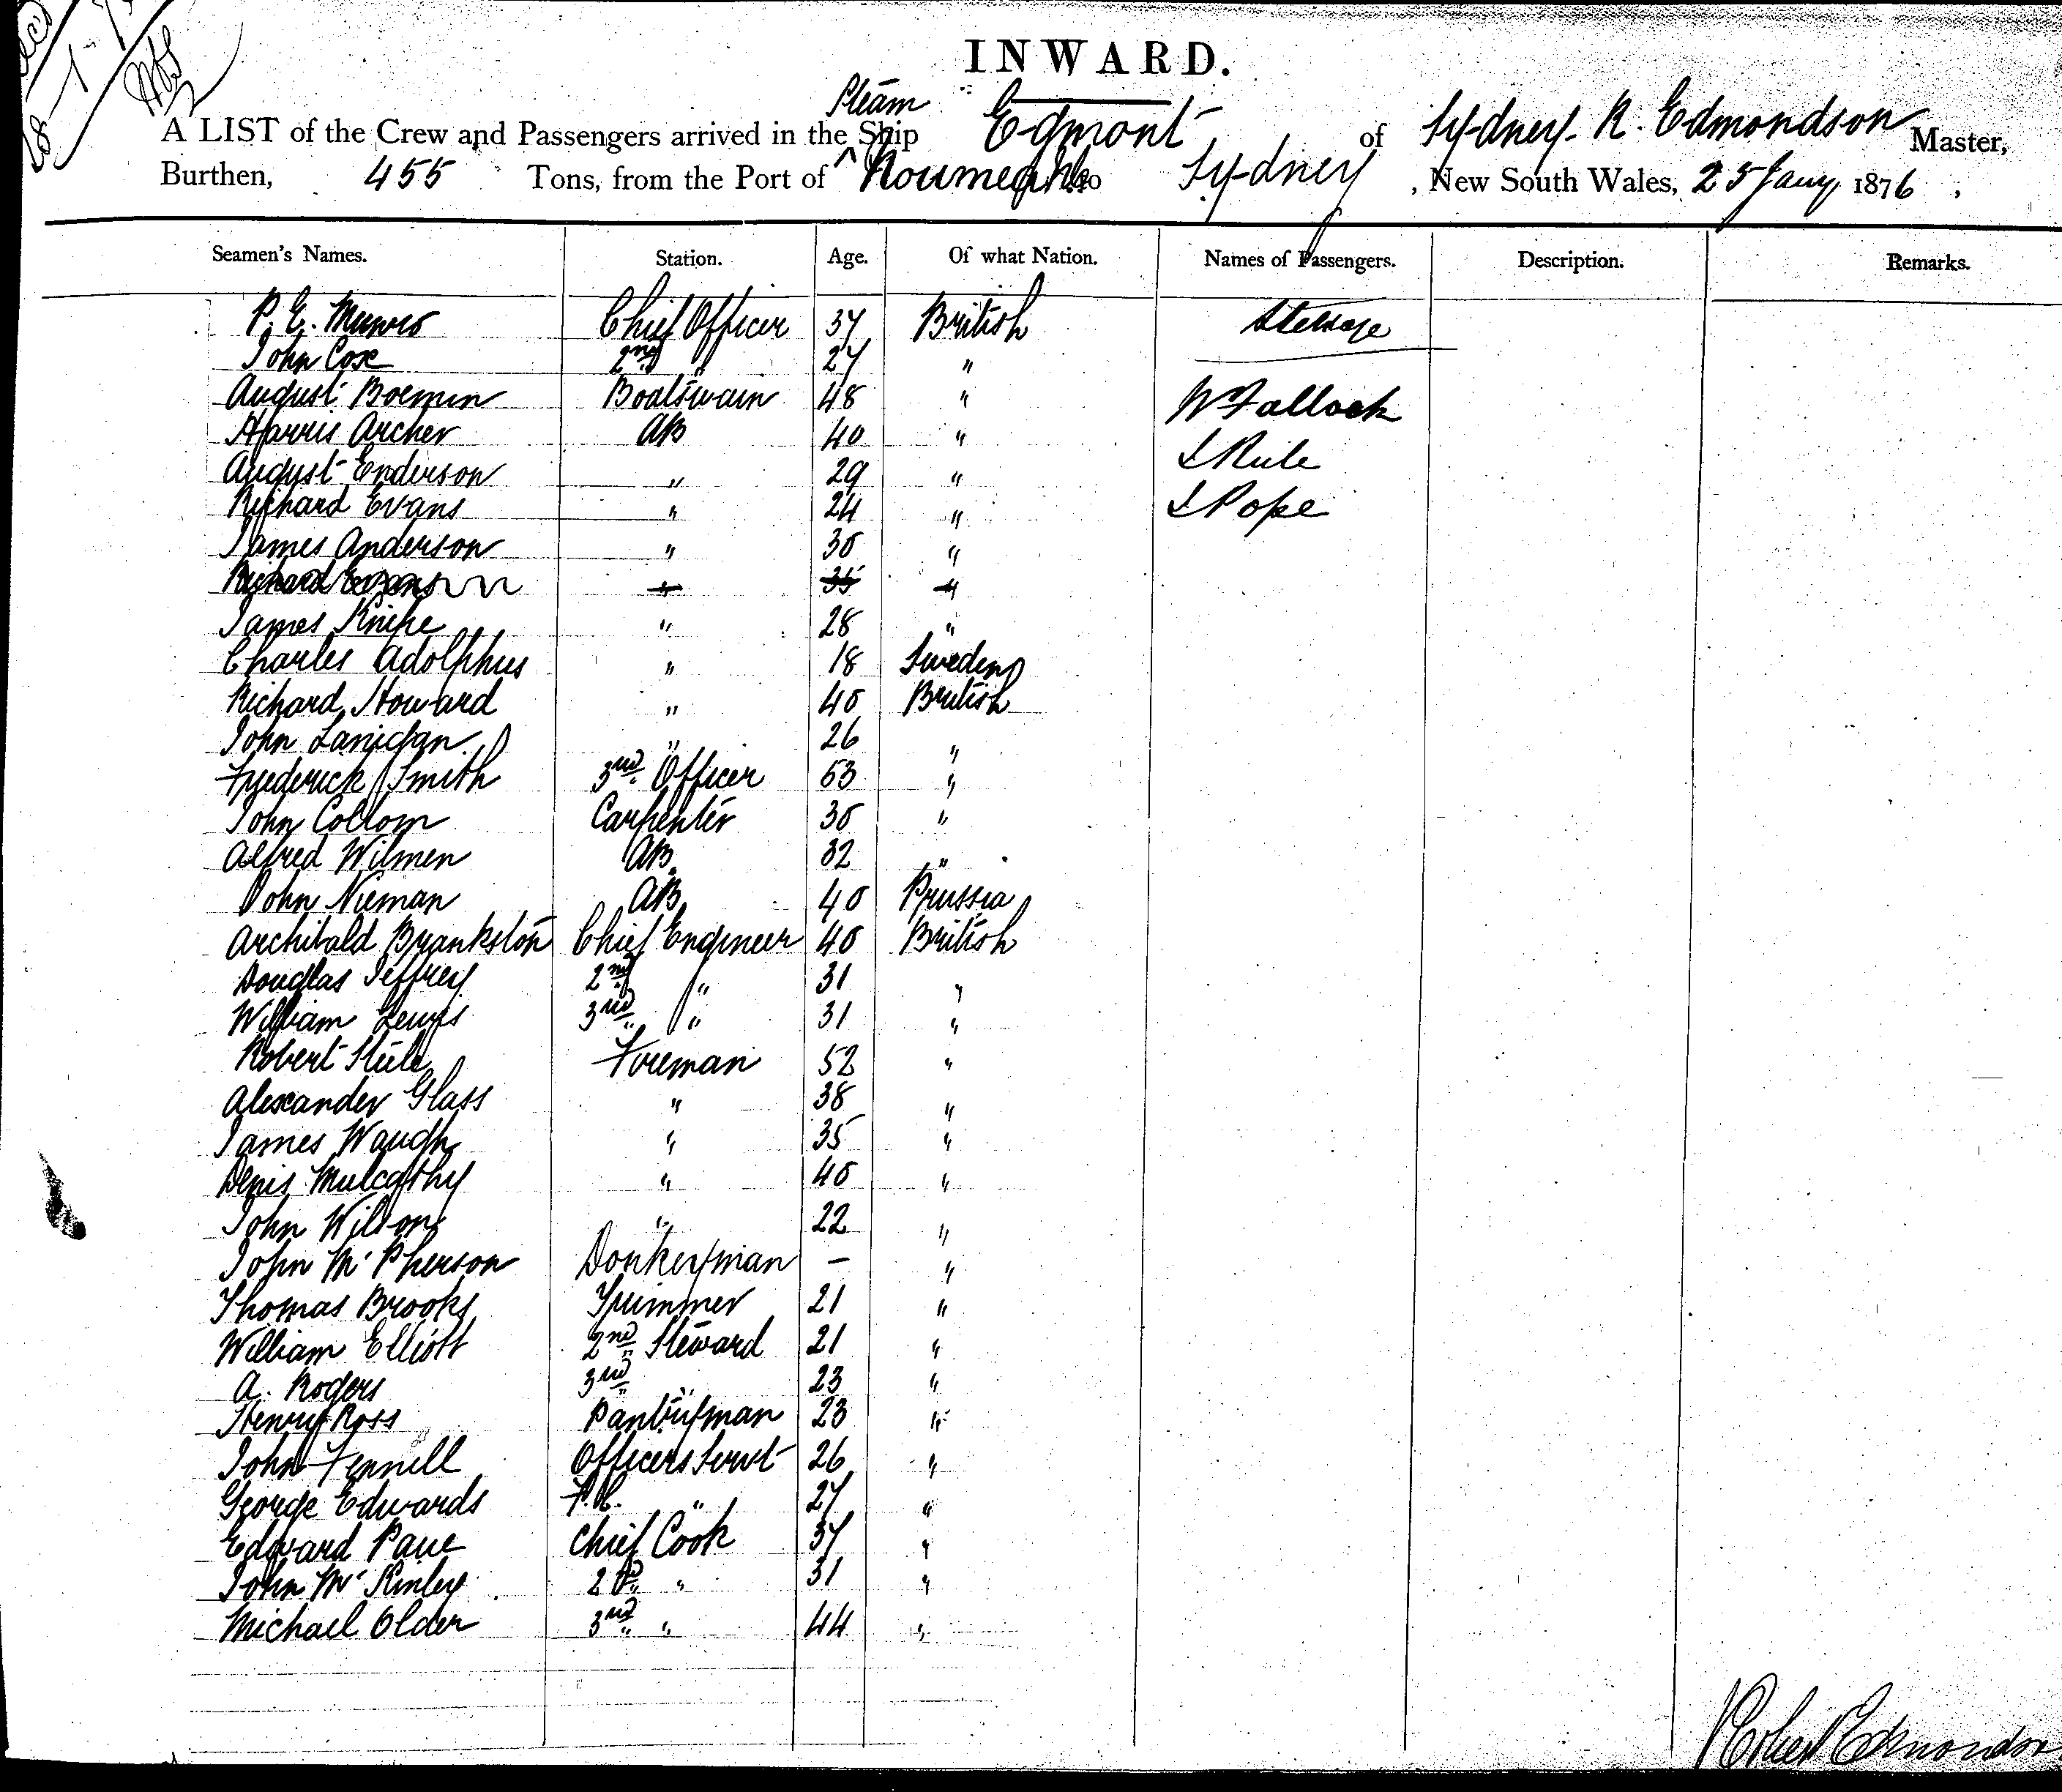 INWARD.
Steam
A LIST of the Crew and Passengers arrived in the ^ Ship Egmont of Sydney. R. Edmondson Master,
Burthen, 455 Tons, from the Port of to Sydney, New South Wales, 25 Jany 1876,
Seamen's Names. Station. Age. Of what Nation. Names of Passengers. Description. Remarks.
P. E. Munro Chief Officer 37 British Steerage
John Cox 2nd " 27 "
August Boemin Boatswain 48 " W Fallock
Harris Archer AB 40 "
August Enderson " 29 " J Rule
Richard Evans " 24 " J Pope
James Anderson " 30 "
Richard Evans " 35 "
James " 28 "
Charles Adolphus " 18 Sweden
Richard Howard " 40 British
John Lanigan " 26 "
Frederick Smith 3rd Officer 53 "
John Collom Carpenter 30 "
Alfred Wilmen AB 32 "
John Nieman AB 40 Prussia
Archibald Brankston Chief Engineer 40 British
Douglas Jeffrey 2nd " 31 "
William Lewis 3rd " 31 "
Robert Steele Fireman 52 "
Alexander Glass " 38 "
James Waugh " 35 "
Denis Mulcathy " 40 "
John Wilson " 22 "
John McPherson Donkeyman - "
Thomas Brooks Trimmer 21 "
William Elliott 2nd Steward 21 "
A. Rogers 3rd " 23 "
Henry Ross Pantryman 23 "
John Fennell Officers Servt 26 "
George Edwards F.C. " 27 "
Edward Paue Chief Cook 37 "
John McKinley 2d " 31 "
Michael Older 3rd " 44 "
Robert Edmondson